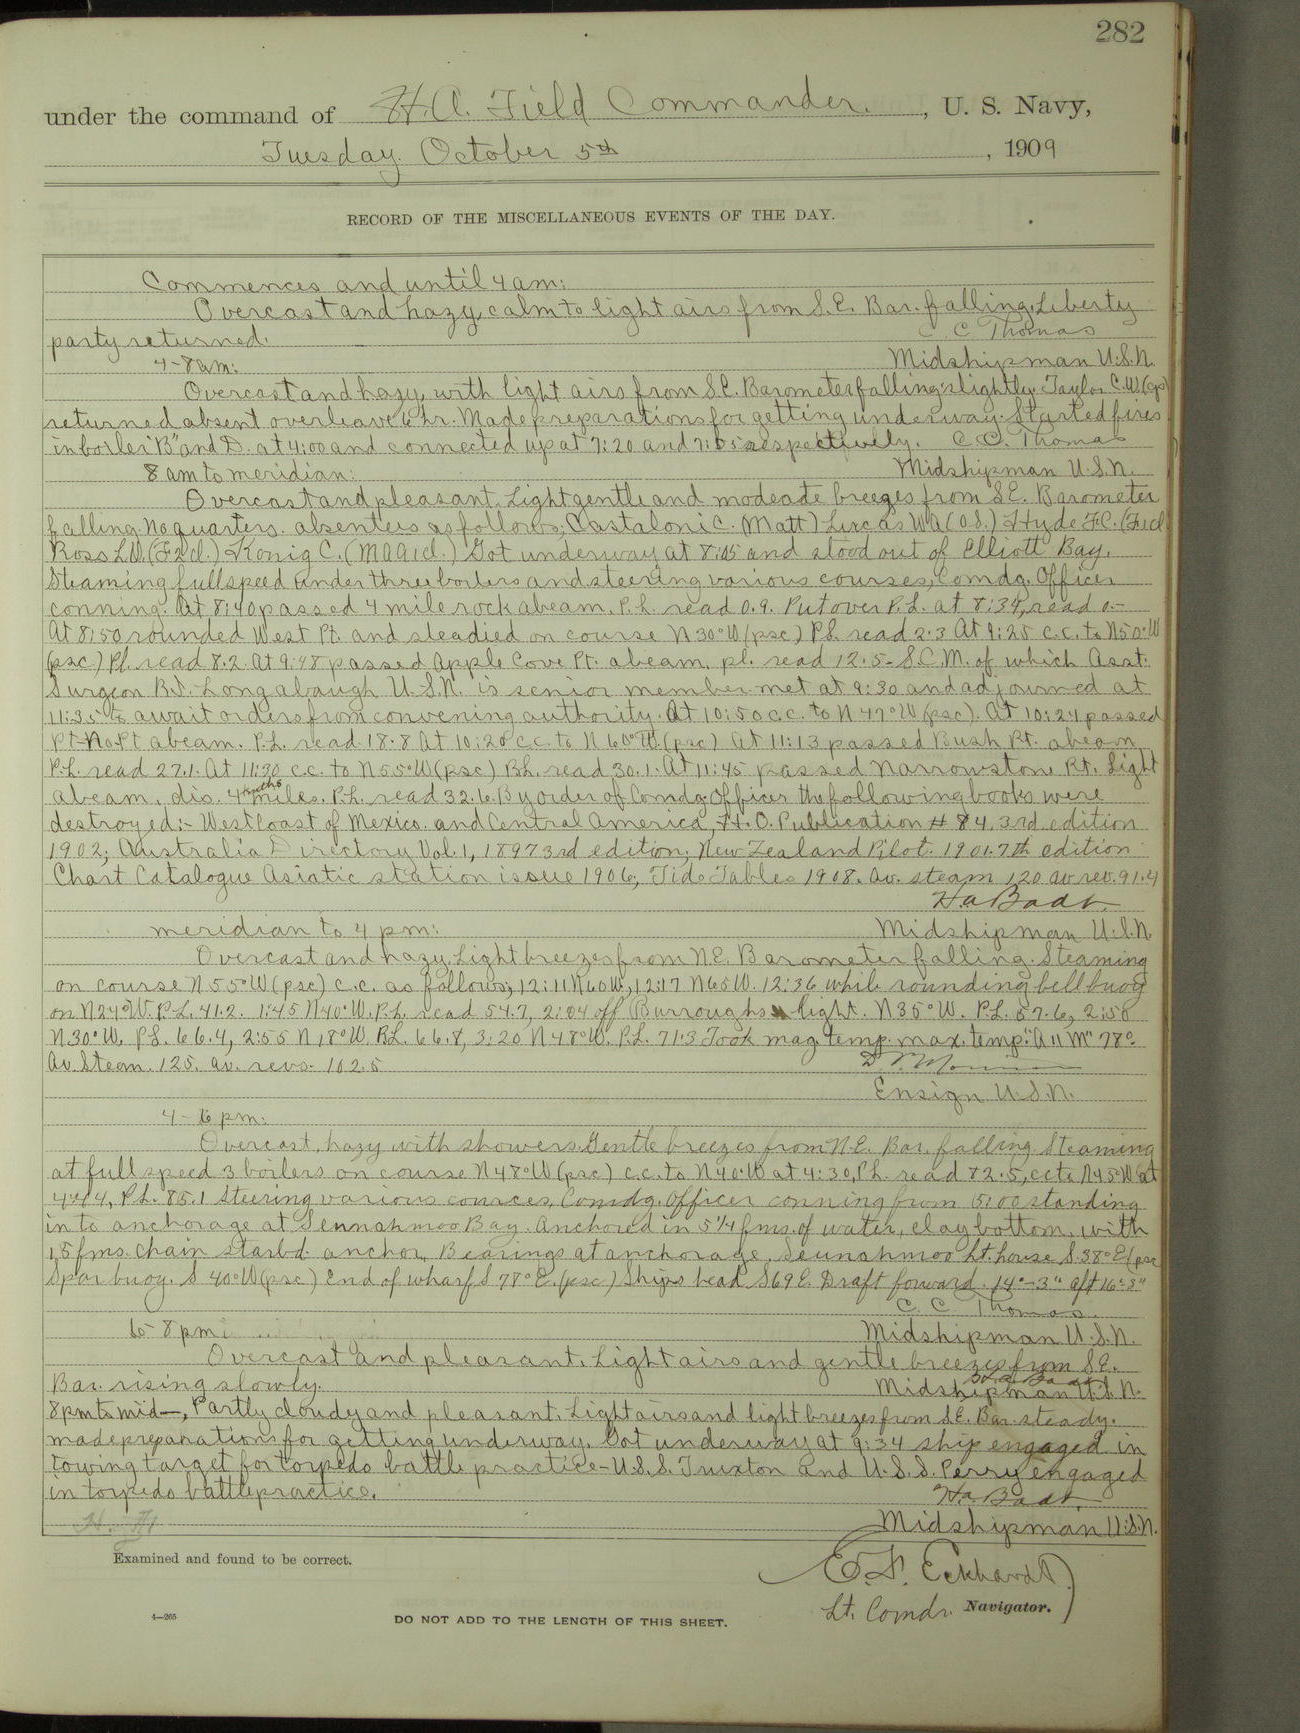 282
under the command of H. A. Field Commander., U. S. Navy,
Tuesday October 5th, 1909
RECORD OF THE MISCELLANEOUS EVENTS OF THE DAY.
Commences and until 4 am:
Overcast and hazy, calm to light airs from S.E. Bar. falling. Liberty
party returned. C C Thomas
Midshipman U.S.N.
4-8 am:
Overcast and hazy with light airs from S.E. Barometer falling slightly. Taylor C.W. (cp)
returned absent overleave 6 hr. Made preparations for getting underway. Started fires
in boiler "B" and D. at 4:00 and connected up at 7:20 and respectively. C C. Thomas
Midshipman U.S.N.
8 am to meridian:
Overcast and pleasant. Light gentle and modeate breezes from S.E. Barometer
falling. No quarters. absentees as follows; Castaloni C. (Matt) Lucas W A (O.S.) Hyde F.C. (F1cl
Ross L.W. (F2cl.) Konig C. (MAA1cl.) Got underway at 8:05 and stood out of Elliott Bay.
Steaming full speed under three boilers and steering various courses, Comdg. Officer
conning. At 8:40 passed 4 mile rock abeam. P.L. read 0.9. Put over P.L. at 8:34, read 0.-
At 8:50 rounded West Pt. and steadied on course N 30° W (psc) P.L. read 2.3 At 9:25 c.c. to N50°W
(psc) P.L. read 8.2. At 9:48 passed Apple Cove Pt. abeam. pl. read 12.5- S.C.M. of which Asst.
Surgeon R.J. Longabaugh U.S.N. is senior member met at 9:30 and adjourned at
11:35 to await orders from convening authority. At 10:50 c.c. to N 47° W (psc). At 10:24 passed
Pt-No-Pt abeam. P.L. read 18.8 At 10:20 c.c. to N 60° W (psc) At 11:13 passed Bush Pt. abeam
P.L. read 27.1. At 11:30 c.c. to N55°W (psc) P.L. read 30.1. At 11:45 passed Marrowstone Pt. Light
abeam, dis. 4 tenths miles. P.L. read 32.6. By order of Comdg Officer the following books were
destroyed:- West Coast of Mexico. and Central America, H.O. Publication # 84. 3rd edition
1902; Australia Directory Vol. 1, 1897 3rd edition; New Zealand Pilot. 1901. 7th edition
Chart Catalogue Asiatic station issue 1906; Tide Tables 1908. Av. steam 120 av rev. 91.4
H. a Badt.
meridian to 4 pm: Midshipman U.S.N.
Overcast and hazy. Light breezes from N.E. Barometer falling. Steaming
on course N 55° W (psc) c.c. as follows; 12:11 N60W; 12:17 N65W. 12:36 while rounding bell buoy
on N24°W. P.L. 41.2. 1:45 N40°W. P.L. read 54.7, 2:04 off Burroughs light. N35°W. P.L. 57.6, 2:50
N30°W. P.L. 66.4, 2:55 N18°W. P.L. 66.8, 3:20 N48°W. P.L. 71.3 Took mag. temp. max. temp. "A 11 M" 78°
Av. Steam. 125. av. revs. 102.5
Ensign U.S.N.
4-6 pm:
Overcast, hazy with showers. Gentle breezes from N.E. Bar. falling Steaming
at full speed 3 boilers on course N48°W (psc) c.c. to N40°W at 4:30, P.L. read 82.5, cc to N45°W at
4:44, P.L. 85.1 Steering various cources, Comdg. Officer conning from 5:00 standing
in to anchorage at Semiahmoo Bay. Anchored in 5 1/4 fms. of water, clay bottom, with
15 fms. chain starbd. anchor. Bearings at anchorage. Semiahmoo Lt. house S. 38° E (psc
Spar buoy. S 40° W (psc) End of wharf S 78° E. (psc) Ships head S69E. Draft forward. 14'-3" aft 16'-3"
C. C Thomas.
6-8 pm: Midshipman U.S.N.
Overcast and pleasant. Light airs and gentle breezes from S.E.
Bar. rising slowly. H. a. Badt
Midshipman U.S.N.
8 pm to mid—, Partly cloudy and pleasant. Light airs and light breezes from S.E. Bar. steady.
made preparations for getting underway. Got underway at 9:34 ship engaged in
towing target for torpedo battle practice- U.S.S. Truxton and U.S.S. Perry engaged
in torpedo battle practice.
H. a Badt.
Midshipman U.S.N.
Examined and found to be correct.
E. F. Eckhardt
Lt. Comdr. Navigator.
4—265
DO NOT ADD TO THE LENGTH OF THIS SHEET.